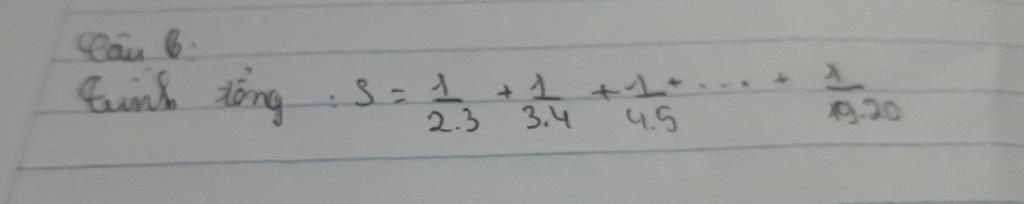 Câu 6:
Tính tổng : S = 1/2.3 + 1/3.4 + 1/4.5 + ... + 1/19.20